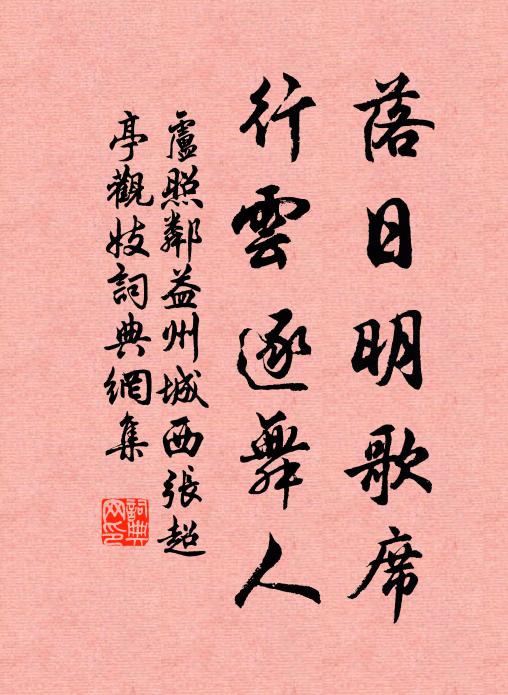 落日明歌席
行雲逐舞人
盧照鄰益州城西張超
亭觀妓詞典網集
詞典網印